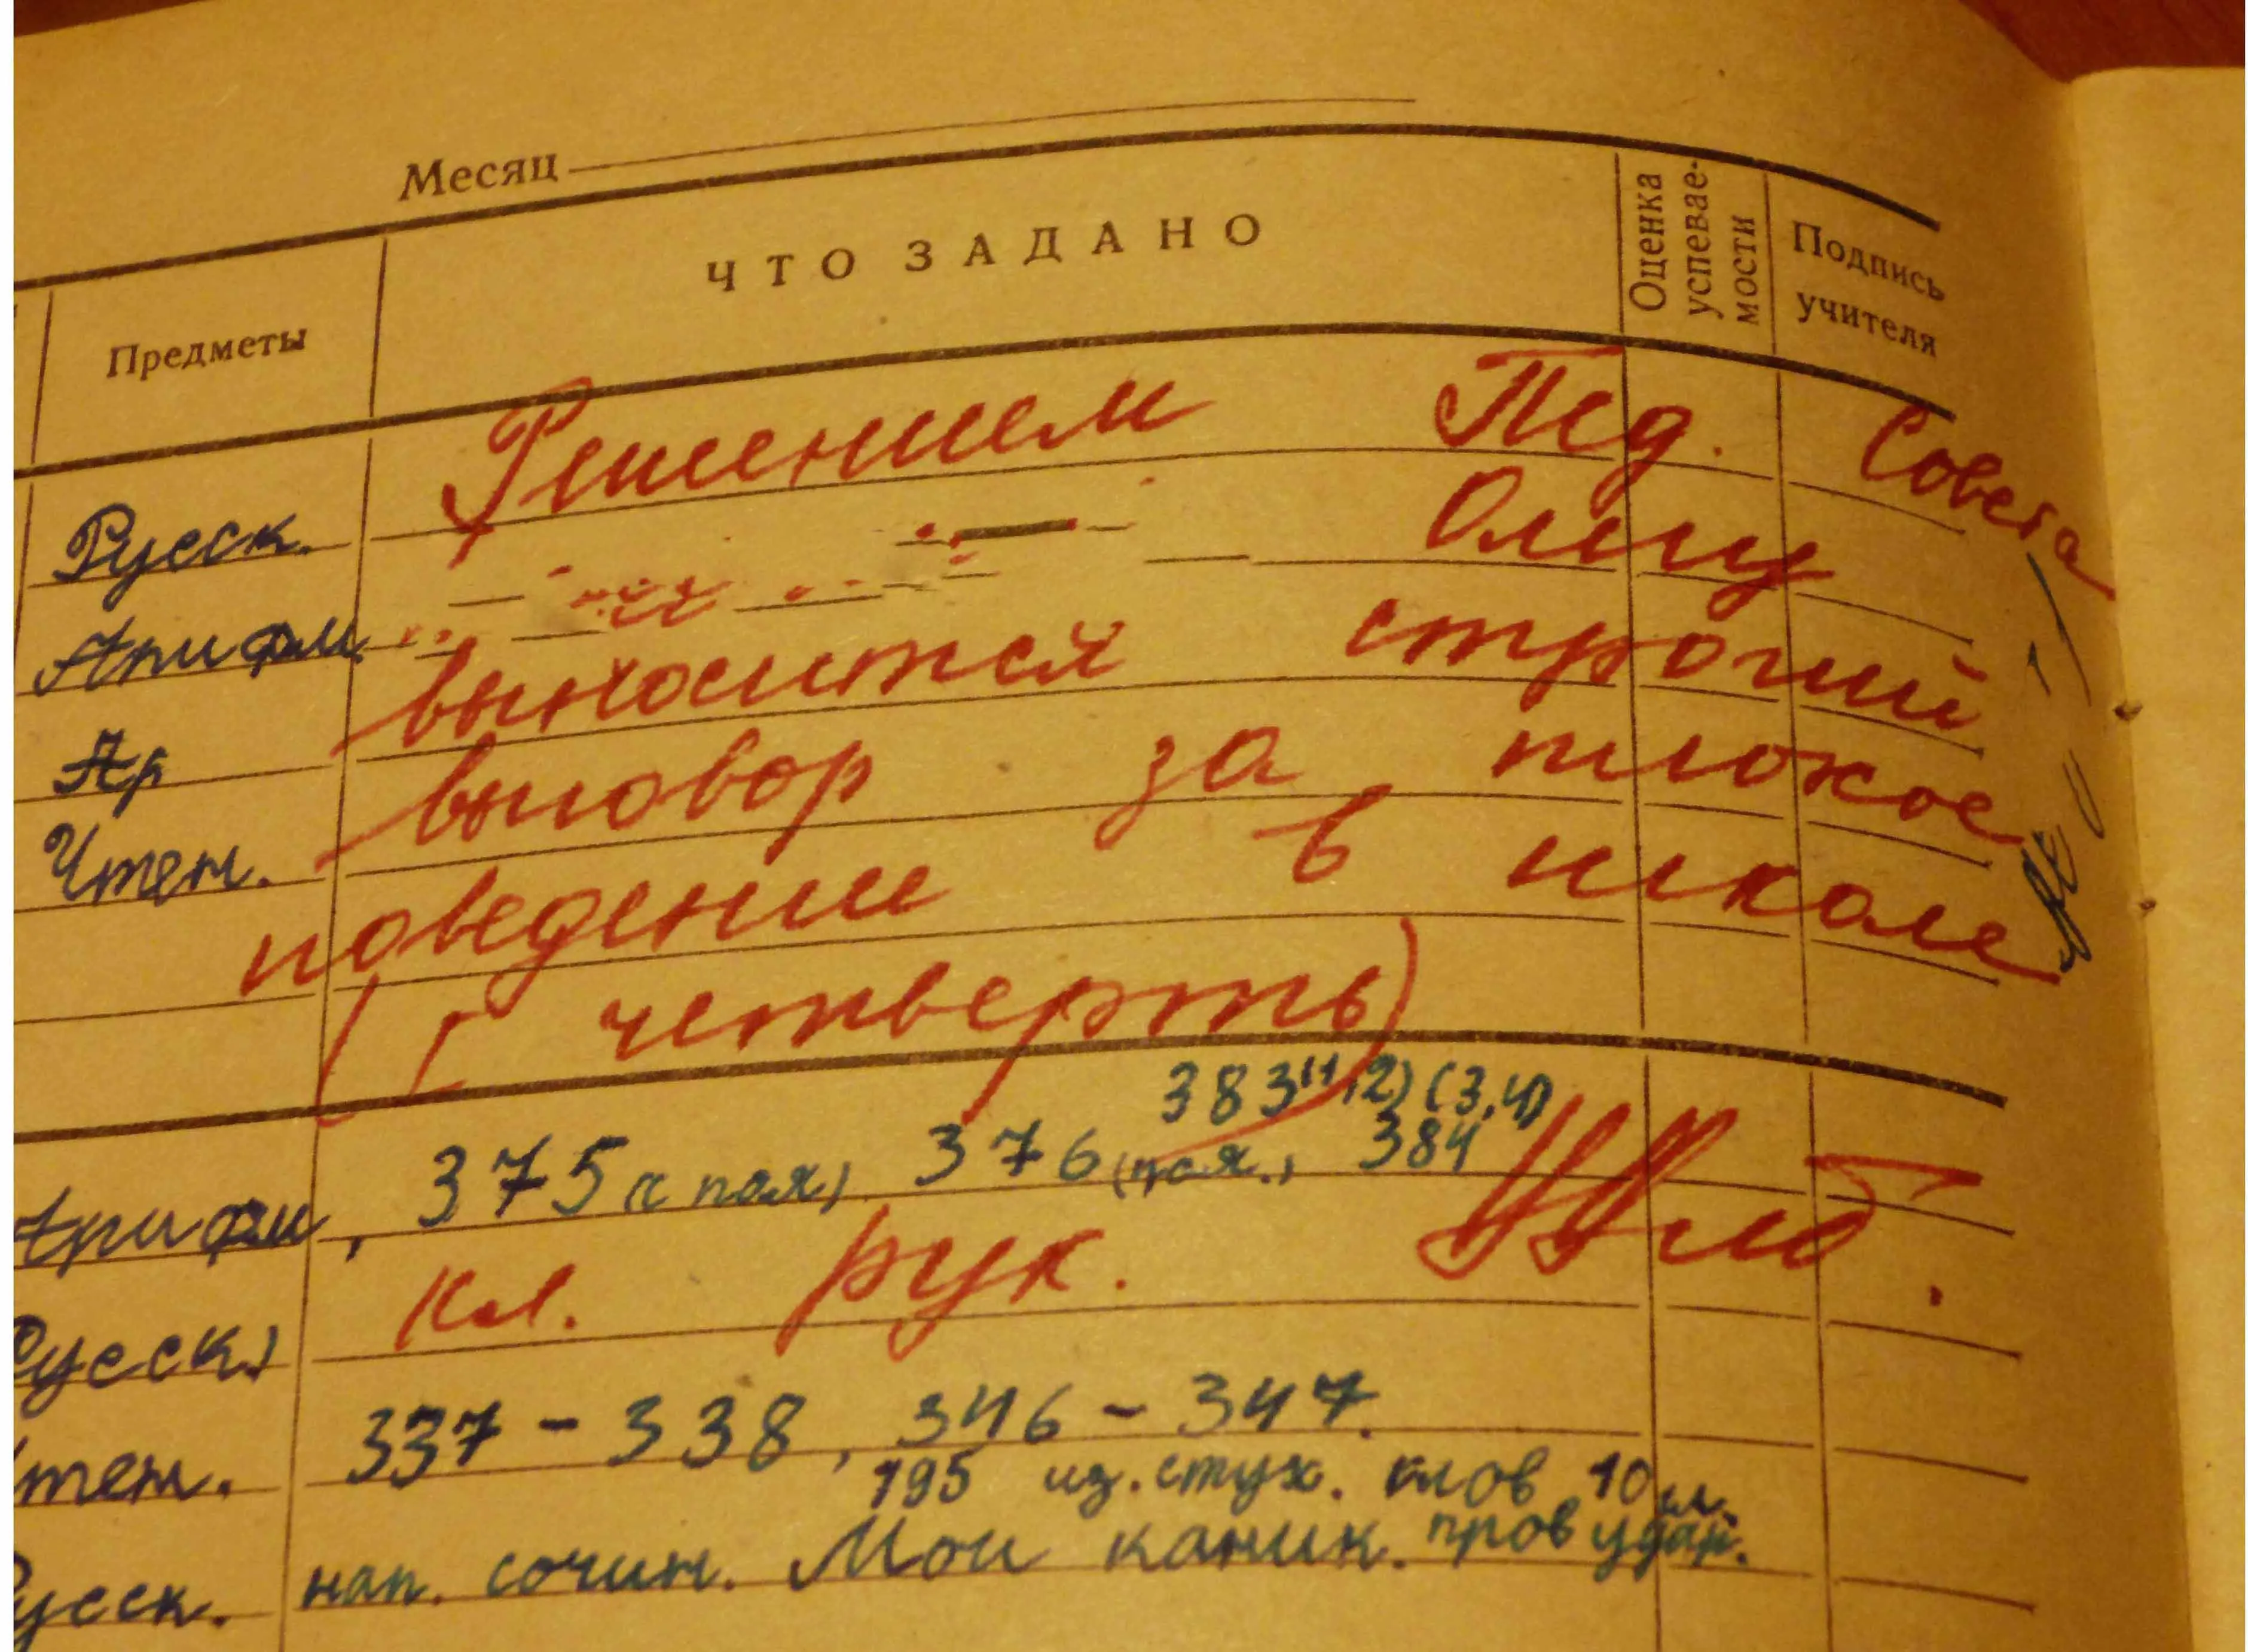 Месяц
Предметы
ЧТО ЗАДАНО
Оценка успевае-
мости
Подпись
учителя
Русск.
Решением Пед. Совета
Арифм.
Олегу
выносится строгий
Ар
выговор за плохое
Чтен.
поведении в школе
(I четверть)
383 (1,2) (3,4)
Арифм, 375 (с поя) 376 (поя.) 384
Кл. рук.
Русск)
Чтен. 337 - 338, 346 - 347.
195 из. стух. слов 10 сл.
Русск. нап. сочин. Мои каник. пров удар.